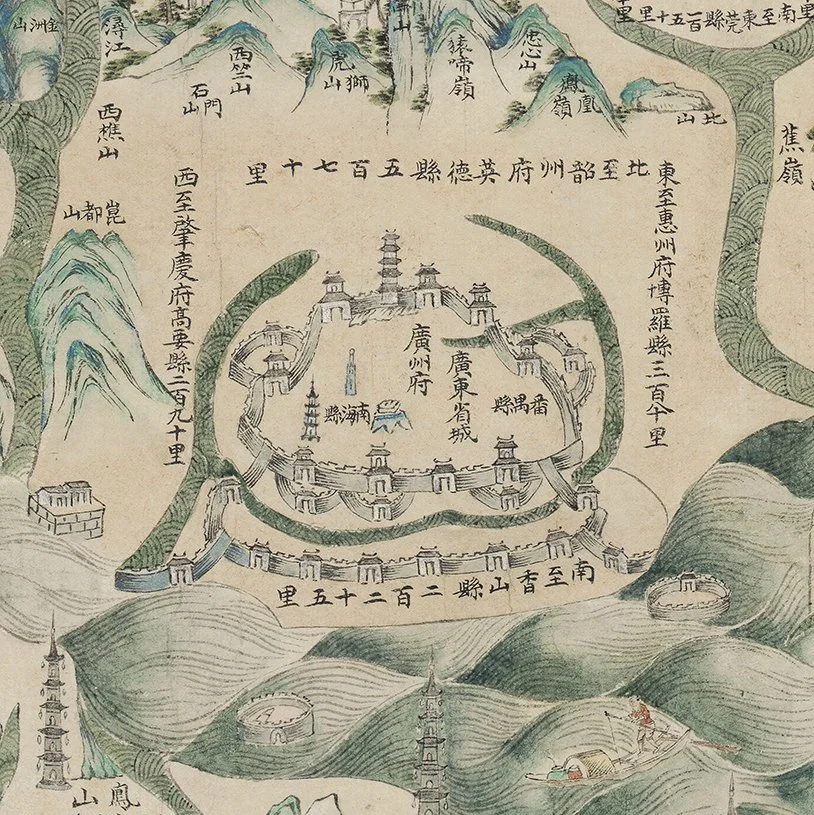 南至東莞縣一百五十里
金洲山
潯江
西竺山
石門山
虎獅山
山
猿啼嶺
忠心山
鳳凰嶺
北山
蕉嶺
西樵山
崑都山
北至韶州府英德縣五百七十里
東至惠州府博羅縣三百十里
西至肇慶府高要縣二百九十里
廣東省城
廣州府
番禺縣
南海縣
南至香山縣二百二十五里
鳳
山